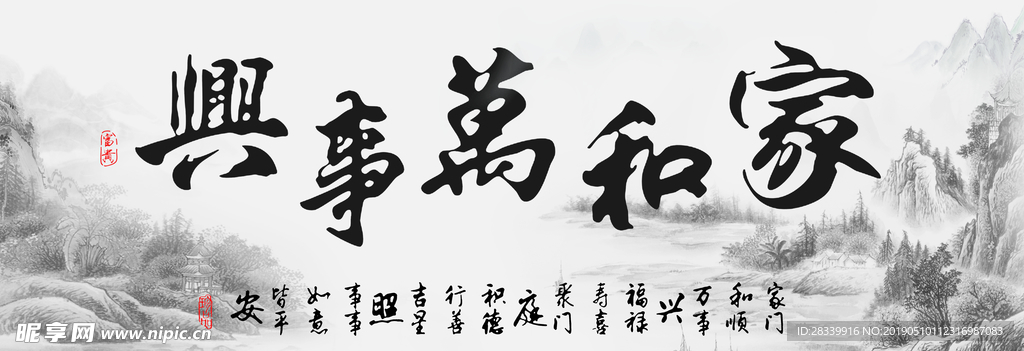 家和萬事興
家门和顺万事兴
福禄寿喜聚门庭
积德行善吉星照
事事如意皆平安
昵享网 www.nipic.cn
ID:28339916 NO:20190510112316987083